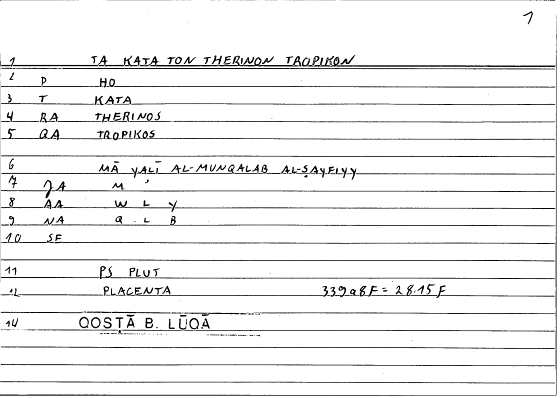 1
1 TA KATA TON THERINON TROPIKON
2 D HO
3 T KATA
4 RA THERINOS
5 QA TROPIKOS
6 MĀ YALĪ AL-MUNQALAB AL-ṢAYFIYY
7 M '
8 AA W L Y
9 NA Q L B
10 SE
11 PS PLUT
12 PLACENTA 339a8F = 28.15F
14 QOSṬĀ B. LŪQĀ